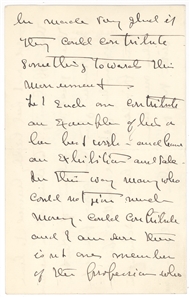 be made very glad if
they could contribute
something toward this
monument.
Let each one contribute
an example of his or
her best work – and have
an Exhibition and sale.
In this way many who
could not give much
money, could contribute
and I am sure there
is not one member
of the profession who